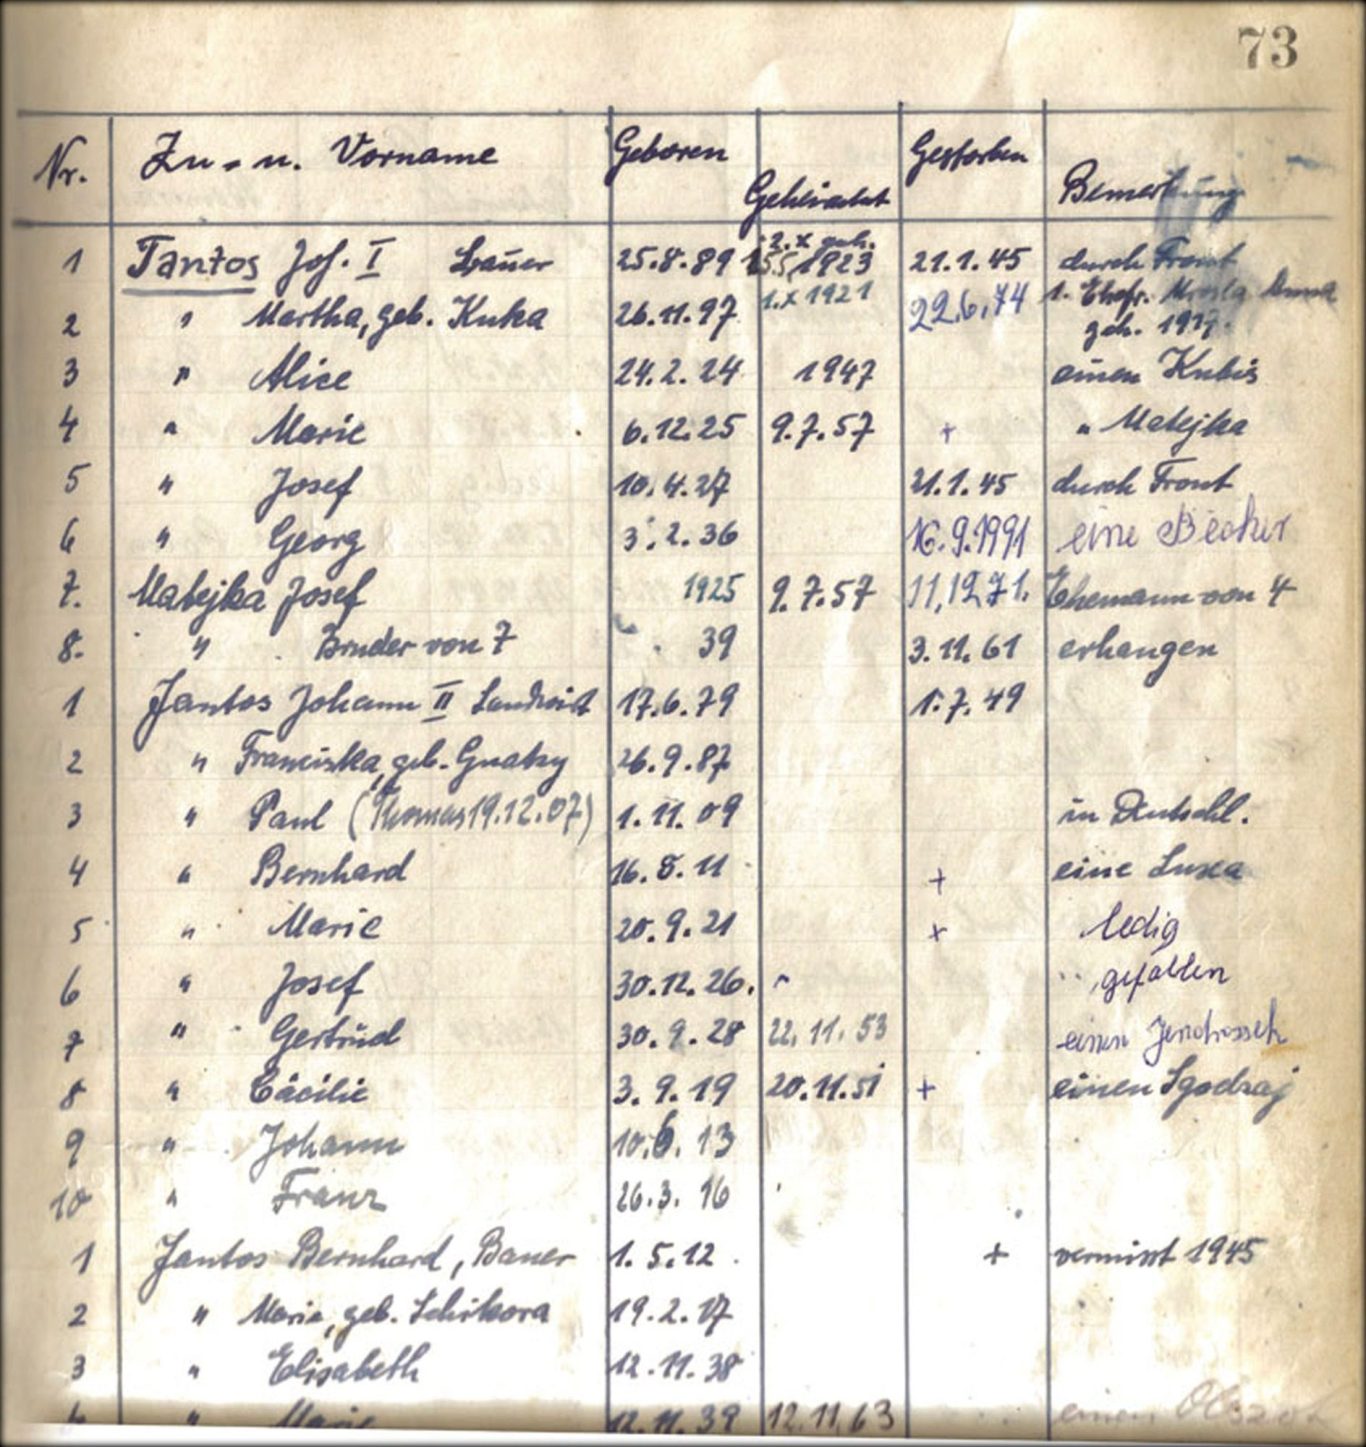 73
Nr. Zu- u. Vorname Geboren Geheiratet Gestorben Bemerkung
2. x geh.
1 Jantos Joh. I Bauer 25.8.89 1923 21.1.45 durch Front
1. x 1921 1. Ehefr. Anna
2 " Martha, geb. Kuka 26.11.97 22.6.74 geh. 1917.
3 " Alice 24.2.24 1947 einen Kubis
4 " Marie 6.12.25 9.7.57 + " Matejka
5 " Josef 10.4.27 21.1.45 durch Front
6 " Georg 3.2.36 16.9.1991 eine Becker
7. Matejka Josef 1925 9.7.57 11.12.71. Ehemann von 4
8. " Bruder von 7 39 3.11.61 erhangen
1 Jantos Johann II Landwirt 17.6.79 1.7.49
2 " Franziska, geb. Gnatzy 26.9.87
3 " Paul (Thomas 19.12.07) 1.11.09 in Deutschl.
4 " Bernhard 16.8.11 + eine Luxa
5 " Marie 20.9.21 + ledig
6 " Josef 30.12.26. " gefallen
7 " Gertrud 30.9.28 22.11.53 einen Jendrossek
8 " Cäcilie 3.9.19 20.11.51 + einen Sgodzaj
9 " Johann 10.6.13
10 " Franz 26.3.16
1 Jantos Bernhard, Bauer 1.5.12 + vermisst 1945
2 " Marie, geb. Schikora 19.2.17
3 " Elisabeth 12.11.38
4 " Marie 12.11.39 12.11.63 einen